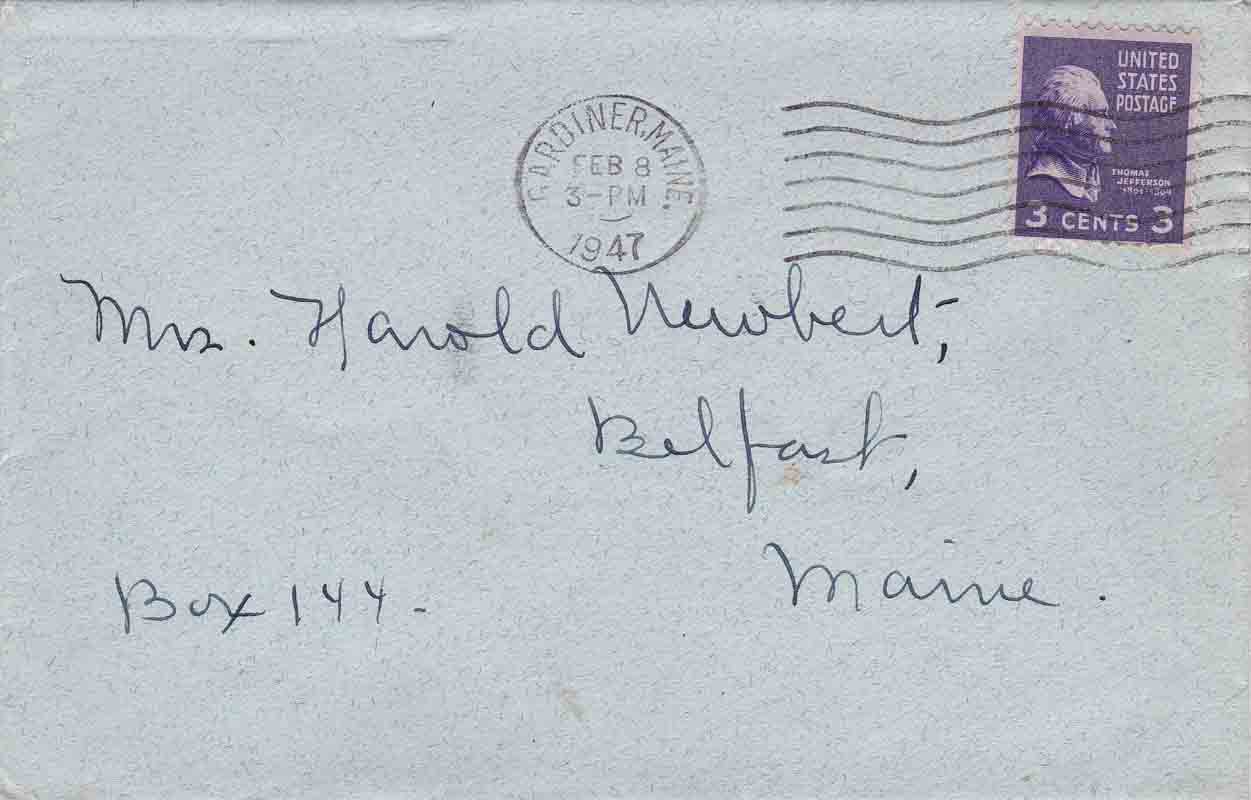 UNITED
STATES
POSTAGE
THOMAS
JEFFERSON
3 CENTS 3
GARDINER, MAINE.
FEB 8
3-PM
1947
Mrs. Harold Newbert,
Belfast,
Maine.
Box 144-